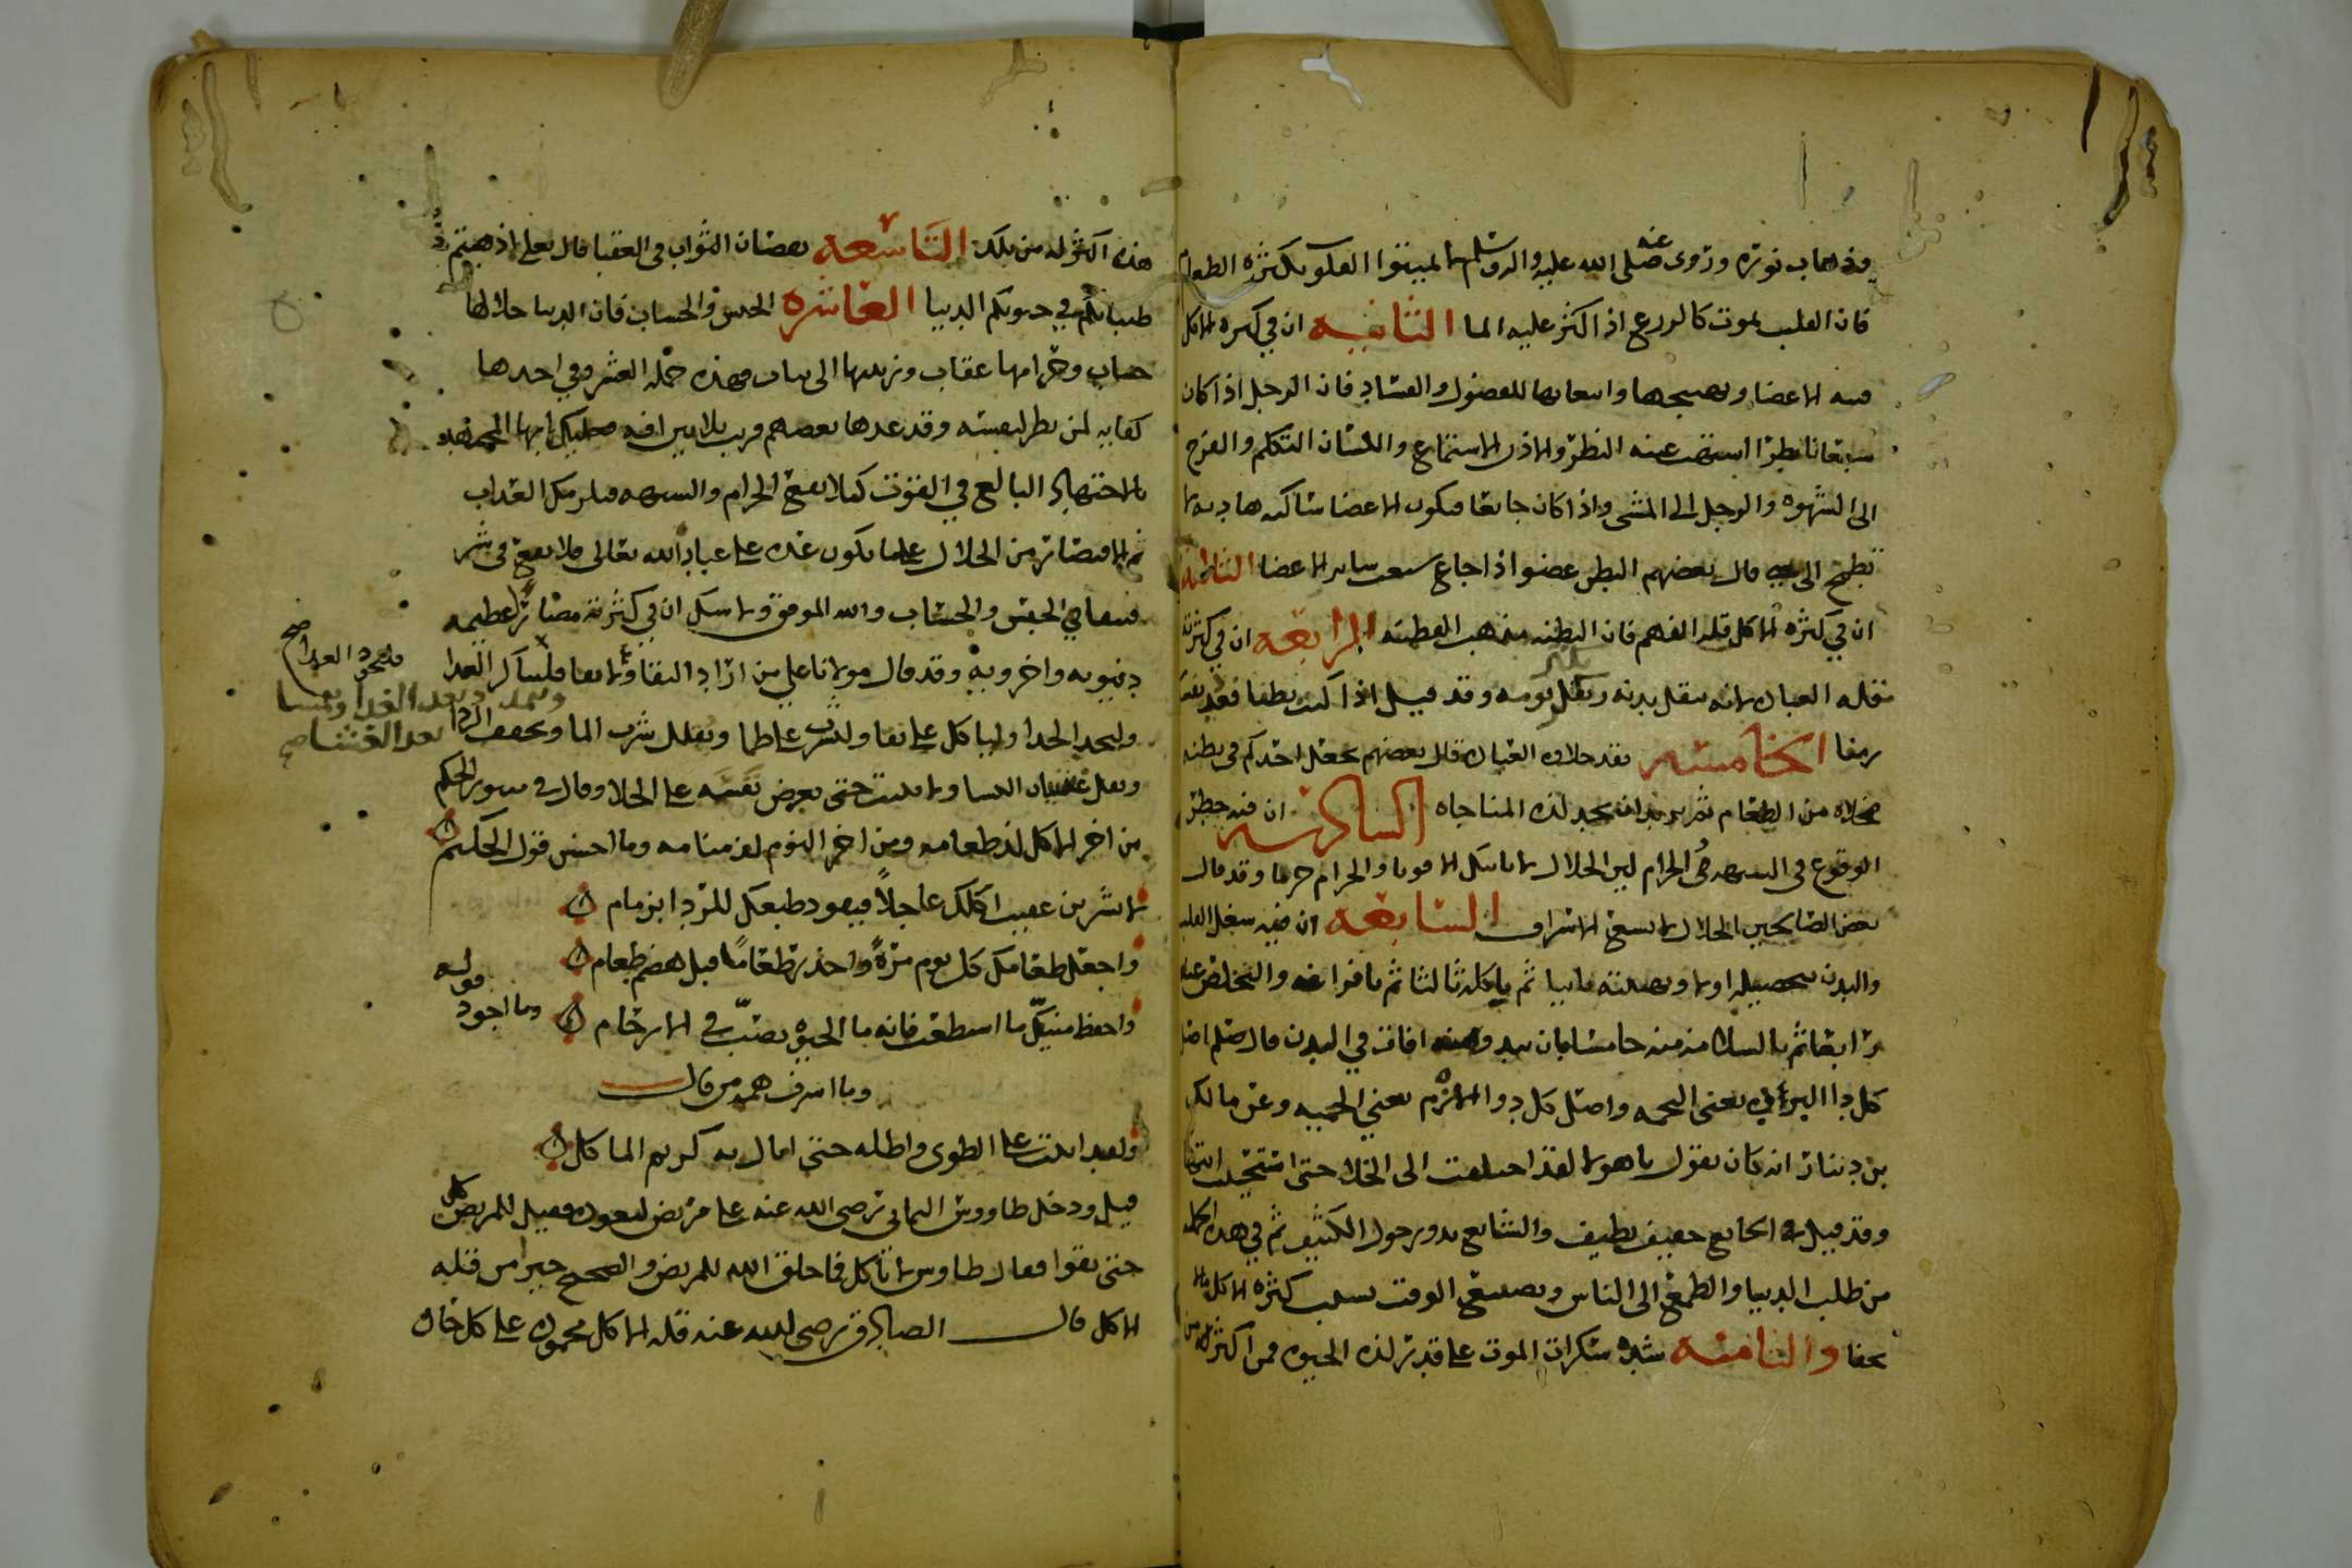 وذهاب نوره وروى عنه صلى الله عليه واله وسلم لا تميتوا القلوب بكثرة الطعام
فان القلب يموت كالزرع اذا اكثر عليه الما الثانيه ان في كثره الاكل
فتنه الاعضا وتهيجها وانبعاثها للفضول والفساد فان الرجل اذا كان
شبعانا بطرا اشتهت عينه النظر والاذن الاستماع واللسان التكلم والفرج
الى الشهوه والرجل الى المشي واذا كان جائعا فتكون الاعضا ساكنه هاديه لا
تطمح الى قال بعضهم البطن عضو اذا جاع شبعت ساير الاعضا الثالثه
ان في كثره الاكل قله الفهم فان البطنه تذهب الفطنه الرابعه ان في كثرته
قله العباده لانه يثقل بدنه ويكثر نومه وقد قيل اذا كنت بطنا فعد نفسك
زمنا الخامسه فقد حلاوه العباده قال بعضهم يجعل احدكم في بطنه
مخلاه من الطعام ثم يريد ان يجد لذه المناجاه السادسه ان فيه خطر
الوقوع في الشبهه والحرام لان الحلال لا ياتيك الا قوتا والحرام جزفا وقد قال
بعض الصالحين الحلال لا يسع الاسراف السابعه ان فيه شغل القلب
والبدن بتحصيله اولا وبتهيئته ثانيا ثم باكله ثالثا ثم بافراغه والتخلص عنه
رابعا ثم بالسلامه منه خامسا بان يبدو منه افات في البدن قال صلعم اصل
كل دا البرده يعني التخمه واصل كل دوا الازم يعني الحميه وعن مالك
بن دينار انه كان يقول يا هولا لقد اختلفت الى الخلا حتى استحييت
وقد قيل الجايع خفيف نظيف والشابع يدور حول الكنيف ثم في هذه
من طلب الدنيا والطمع الى الناس وتضييع الوقت بسبب كثره الاكل ما لا
يخفا والثامنه شده سكرات الموت على قدر لذه الحيوه فمن اكثر من
هذه اكثر له من تلك التاسعه نقصان الثواب في العقبا قال تعالى اذهبتم
طيباتكم في حيوتكم الدنيا العاشره الحبس والحساب فان الدنيا حلالها
حساب وحرامها عقاب وزينتها الى تباب فهذه جمله العشر وفي احدها
كفايه لمن نظر لنفسه وقد عدها بعضهم قريب ثلاثين افه فعليك ايها المجتهد
بالاجتهاد البالغ في القوت كيلا تقع في الحرام والشبهه فيلزمك العذاب
ثم الاقتصار من الحلال على ما يكون عده على عباد الله تعالى فلا تقع في شر
فتبقا في الحبس والحساب والله الموفق ولا شك ان في كثرته مضار عظيمه
دنيويه واخرويه وقد قال مولانا علي من اراد البقا ولا بقا فليباكر الغدا
وليجد الحذا وليا كل على نقا وليشرب على ظما ويقلل شرب الما ويخفف الردا
فليجود الغدا صح
ويتمدد بعد الغدا ويتمشا
بعد العشا صح
ويقل غشيان النسا ولا يبيت حتى يعرض نفسه على الخلا وقال في منثور الحكم
من اخر الاكل لذ طعامه ومن اخر النوم لذ منامه وما احسن قول الحكيم
لا تشربن عقيب اكلك عاجلا فيقود طبعك للردا بزمام
واجعل طعامك كل يوم مرة واحذر طعاما قبل هضم طعام
واحفظ منيك ما استطعت فانه ما الحيوه يصب في الارحام
وما اجود
قوله
وما اشرف همه من قال
ولقد ابيت على الطوى واظله حتى انال به كريم الماكل
قيل ودخل طاووس اليماني رضي الله عنه على مريض ليعوده فقيل للمريض كل
حتى تقوا فقال طاوس لا تاكل فما خلق الله للمريض والصحيح خيرا من قله
الاكل قال الصادق رضي الله عنه قله الاكل محمود على كل حال